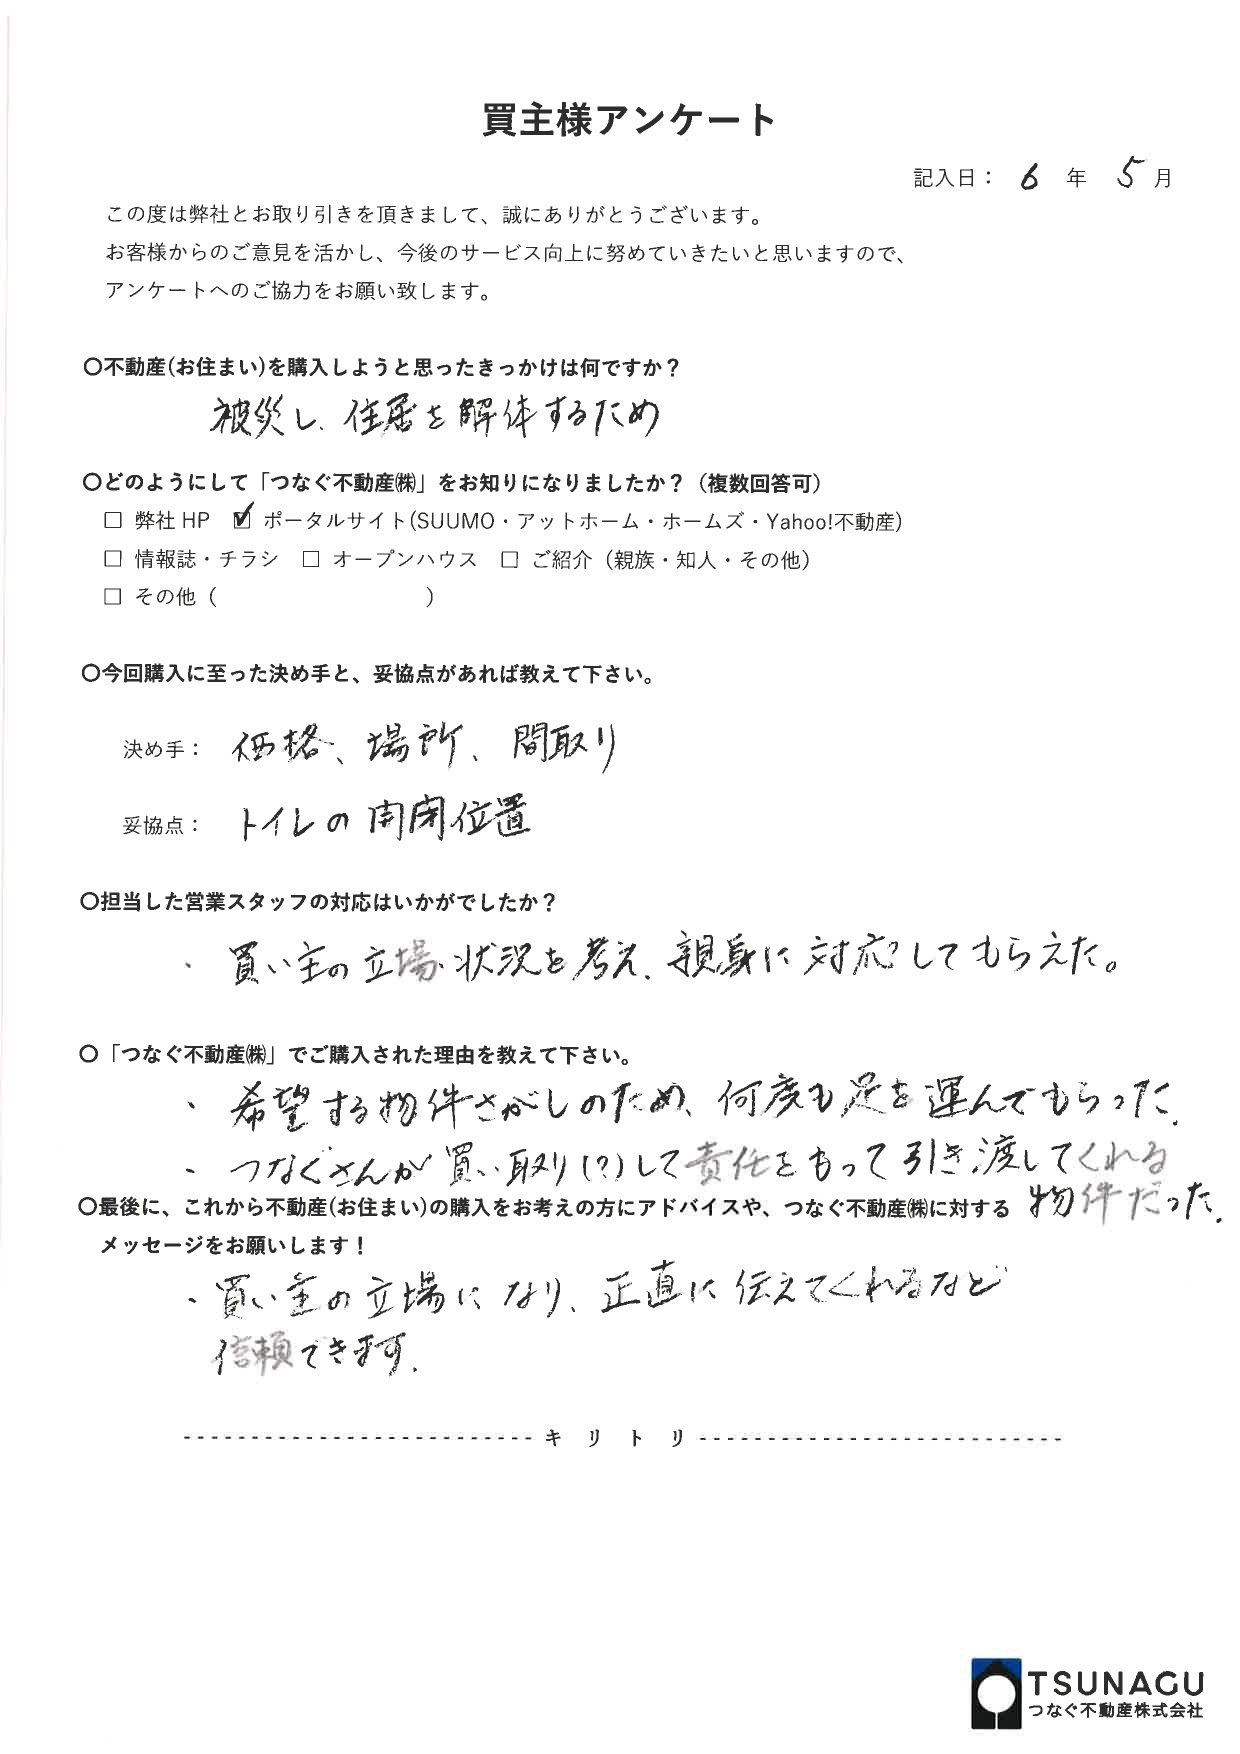 買主様アンケート
記入日： 6 年 5 月
この度は弊社とお取り引きを頂きまして、誠にありがとうございます。
お客様からのご意見を活かし、今後のサービス向上に努めていきたいと思いますので、
アンケートへのご協力をお願い致します。
〇不動産(お住まい)を購入しようと思ったきっかけは何ですか？
被災し、住居を解体するため
〇どのようにして「つなぐ不動産㈱」をお知りになりましたか？（複数回答可）
□ 弊社 HP ☑ ポータルサイト(SUUMO・アットホーム・ホームズ・Yahoo!不動産)
□ 情報誌・チラシ □ オープンハウス □ ご紹介（親族・知人・その他）
□ その他（ ）
〇今回購入に至った決め手と、妥協点があれば教えて下さい。
決め手： 価格、場所、間取り
妥協点： トイレの開閉位置
〇担当した営業スタッフの対応はいかがでしたか？
・買い主の立場・状況を考え、親身に対応してもらえた。
〇「つなぐ不動産㈱」でご購入された理由を教えて下さい。
・希望する物件さがしのため、何度も足を運んでもらった。
・つなぐさんが買い取り(?)して責任をもって引き渡してくれる
物件だった。
〇最後に、これから不動産(お住まい)の購入をお考えの方にアドバイスや、つなぐ不動産㈱に対する
メッセージをお願いします！
・買い主の立場になり、正直に伝えてくれるなど
信頼できます。
キリトリ
TSUNAGU
つなぐ不動産株式会社